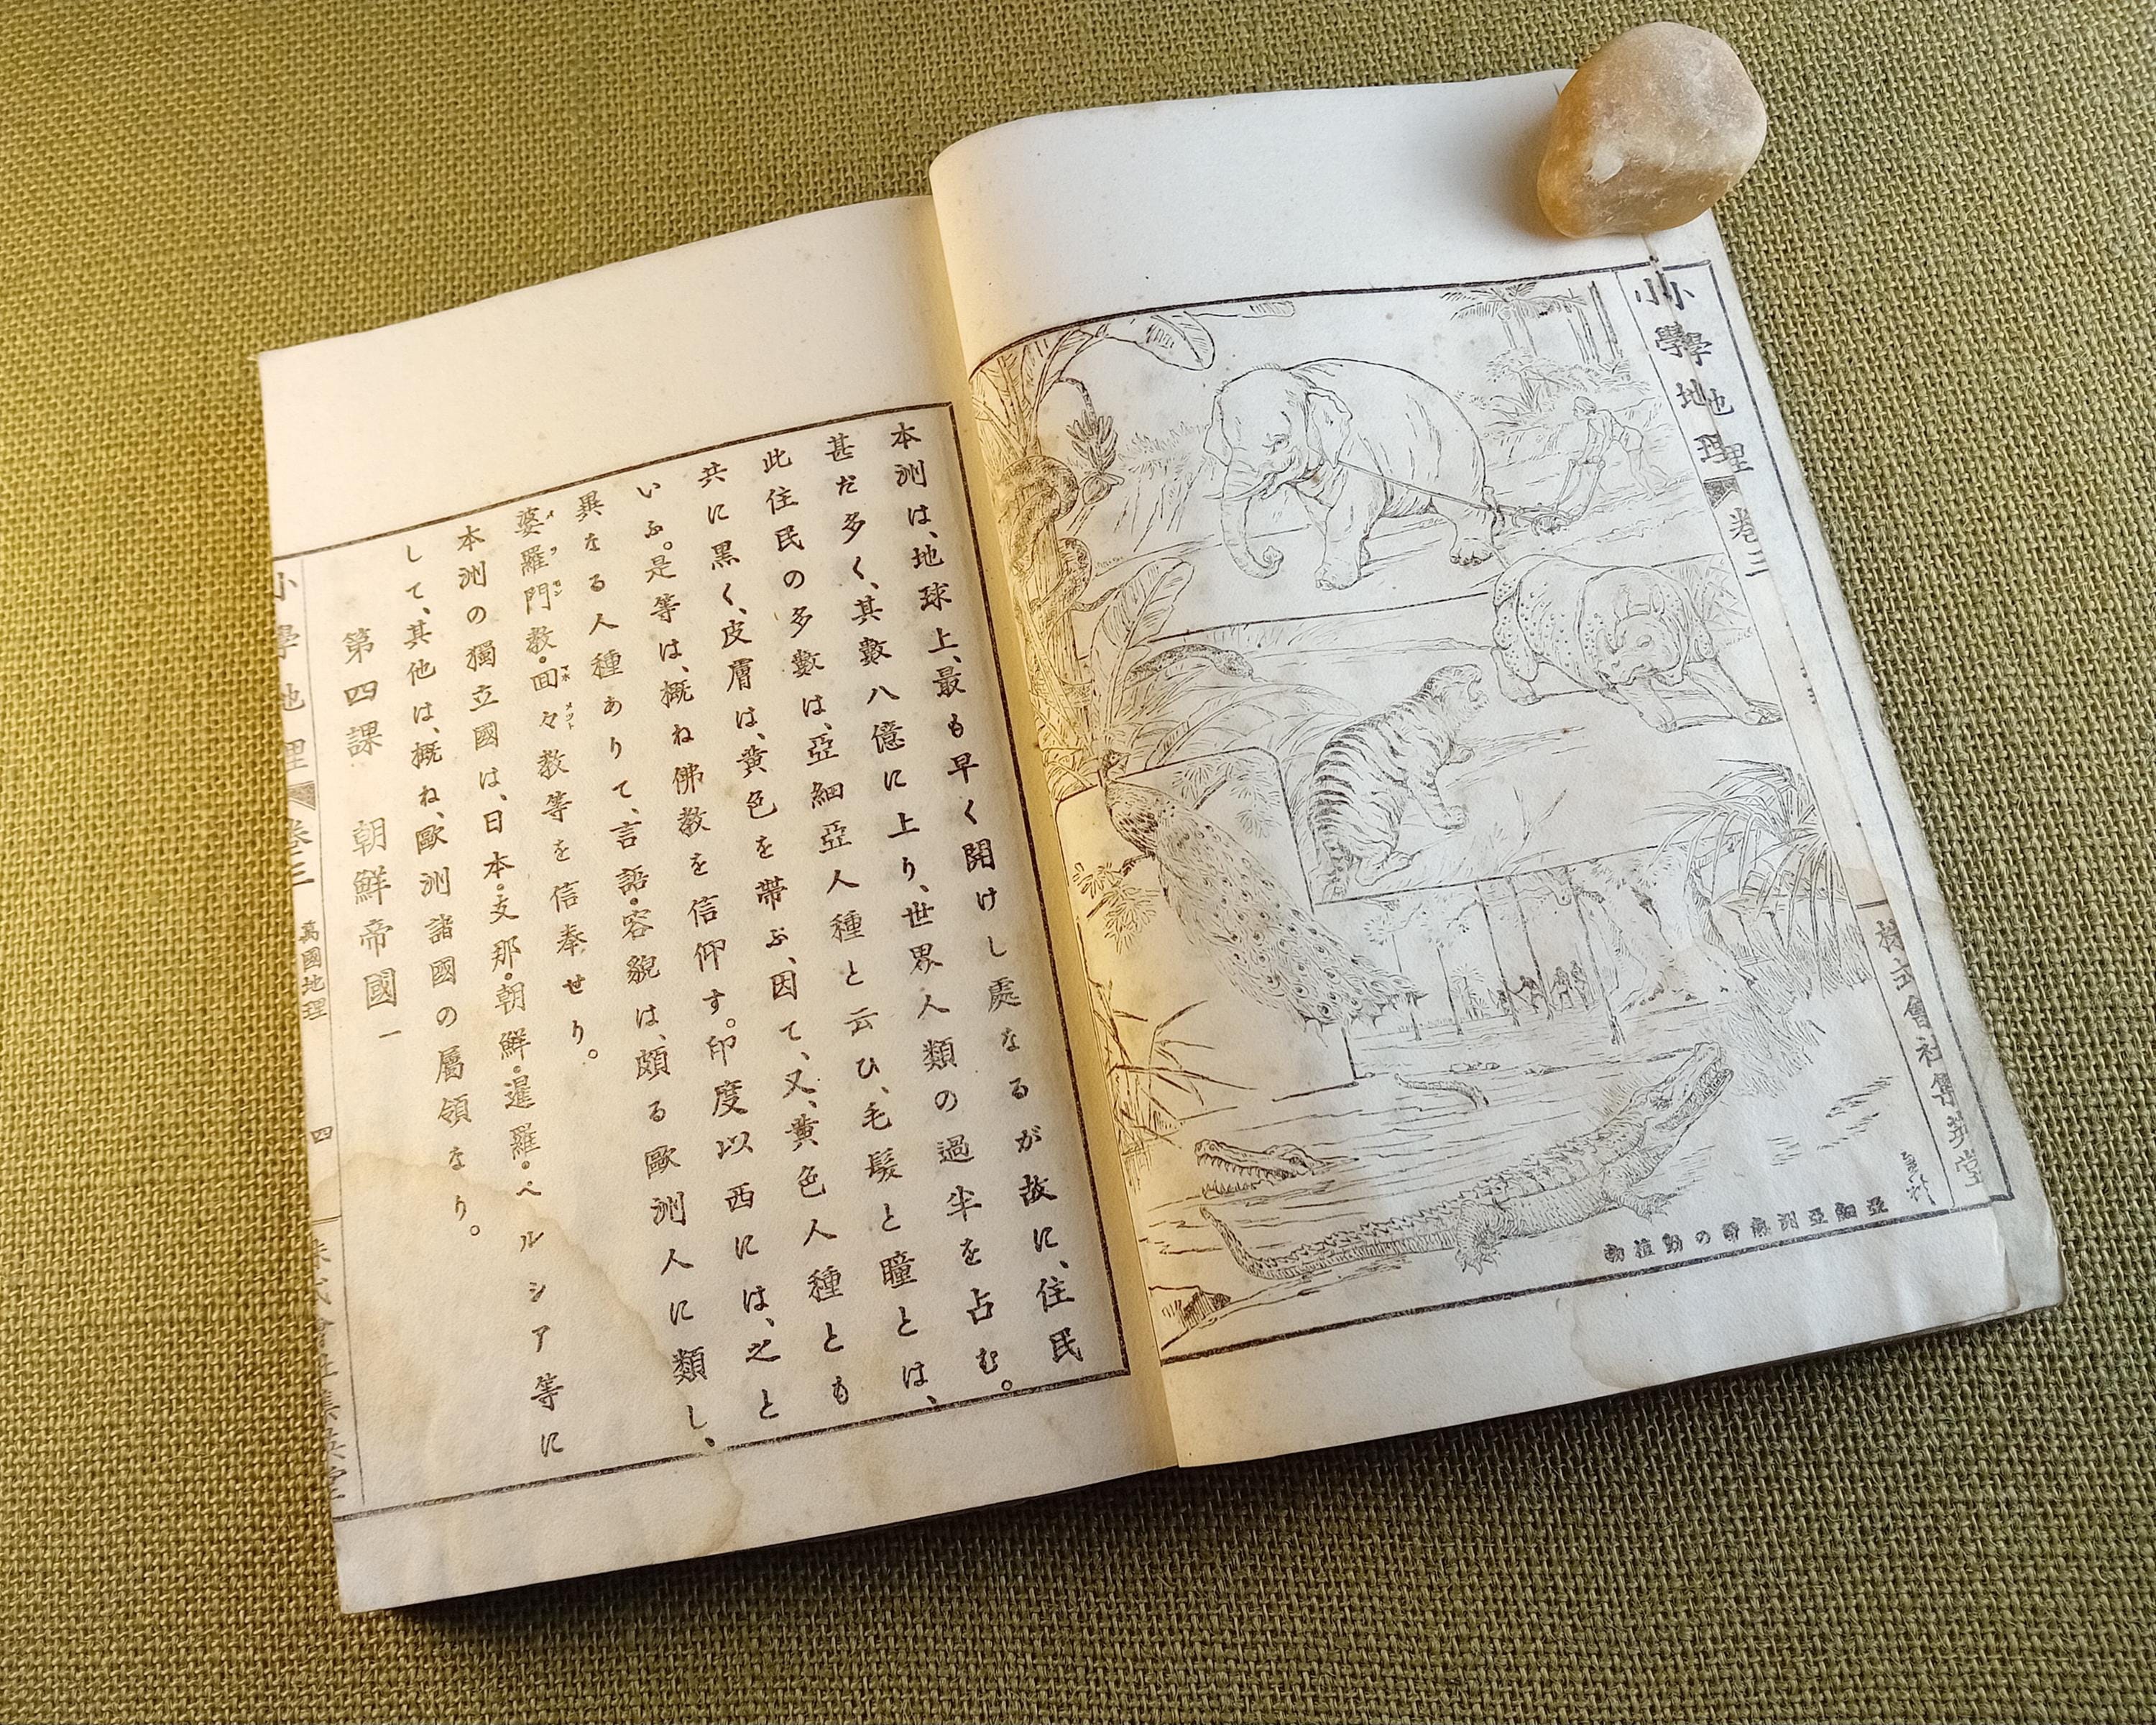 小學地理 卷三
株式會社集英堂
亞細亞洲熱帶の動植物
本洲は、地球上、最も早く開けし處なるが故に、住民
甚だ多く、其數八億に上り、世界人類の過半を占む。
此住民の多數は、亞細亞人種と云ひ、毛髮と瞳とは、
共に黒く、皮膚は、黃色を帶ぶ、因て、又、黃色人種とも
いふ。是等は、概ね佛教を信仰す。印度以西には、之と
異なる人種ありて、言語・容貌は、頗る歐洲人に類し、
婆羅門教・回々教等を信奉せり。
本洲の獨立國は、日本・支那・朝鮮・暹羅・ペルシア等に
して、其他は、概ね、歐洲諸國の屬領なり。
第四課 朝鮮帝國 一
小學地理 卷三 萬國地理 四 株式會社集英堂